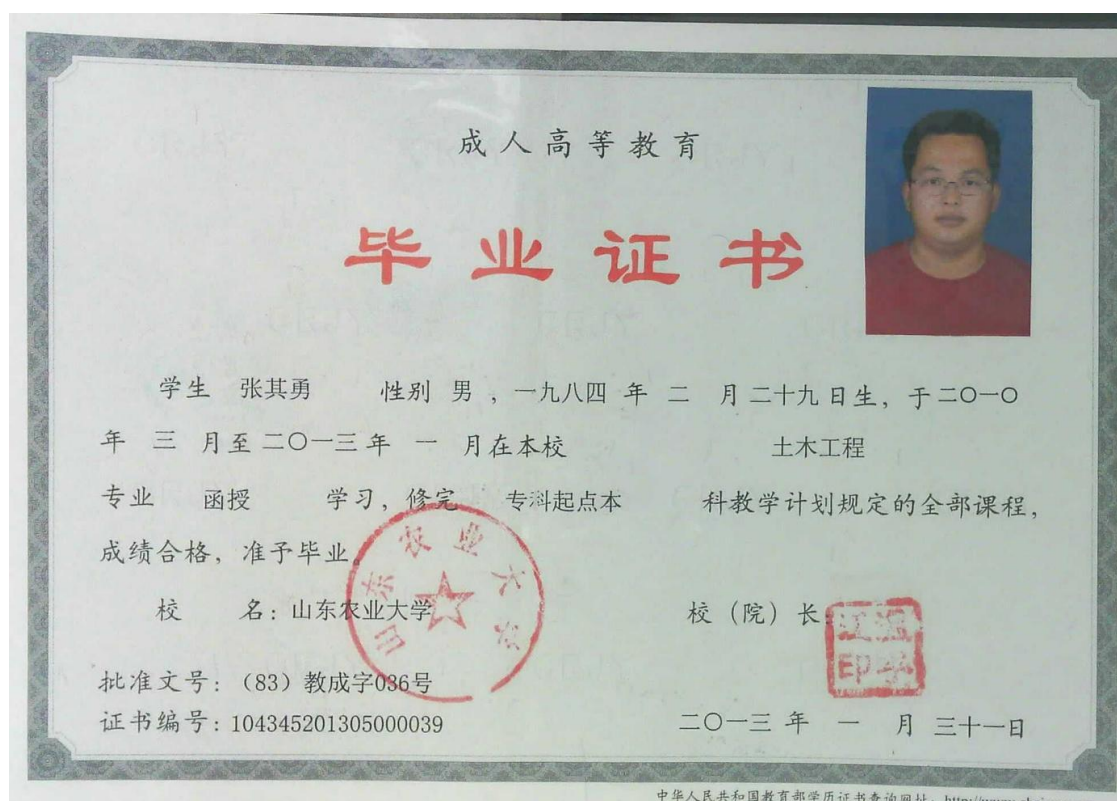 成人高等教育
毕业证书
学生 张其勇 性别 男 ，一九八四 年 二 月 二十九 日生，于 二〇一〇
年 三 月至 二〇一三 年 一 月在本校 土木工程
专业 函授 学习，修完 专科起点本 科教学计划规定的全部课程，
成绩合格，准予毕业。
山东农业大学
校 名：山东农业大学 校（院）长：
印
批准文号：（83）教成字036号
证书编号：104345201305000039 二〇一三 年 一 月 三十一日
中华人民共和国教育部学历证书查询网址：